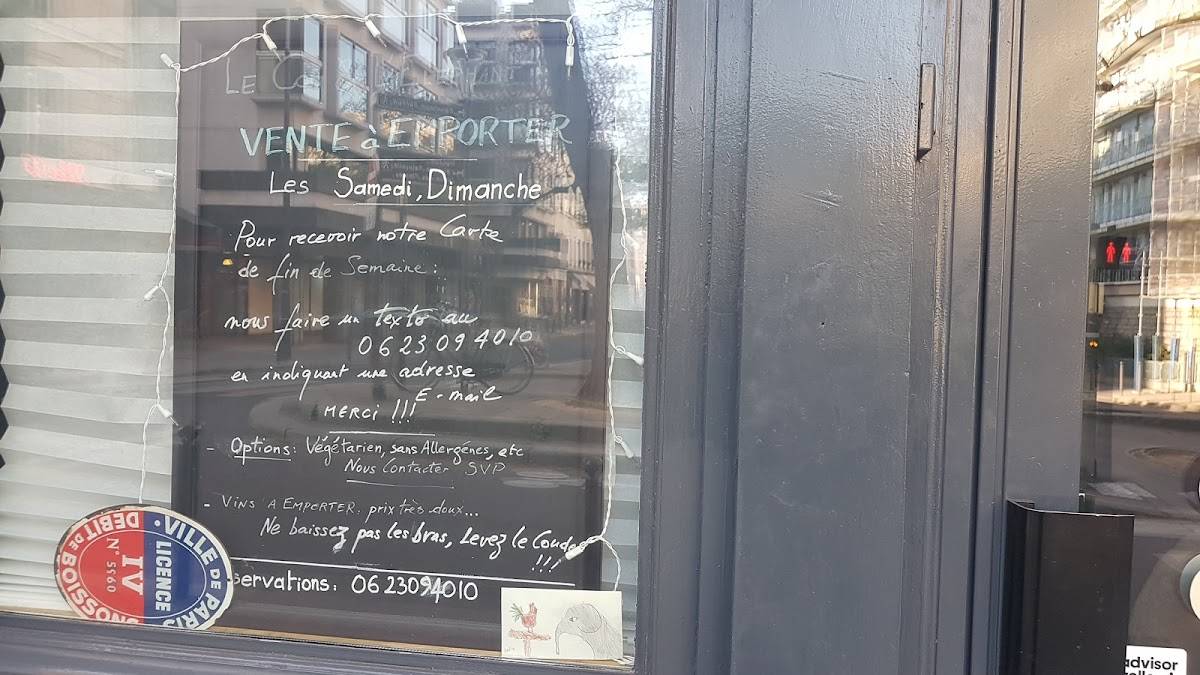 LE
VENTE à EMPORTER
Les Samedi, Dimanche
Pour recevoir notre Carte
de fin de Semaine:
nous faire un texto au
06 23 09 40 10
en indiquant une adresse
E-mail
MERCI !!!
- Options: Végétarien, sans Allergénes, etc
Nous Contacter SVP
- VINS A EMPORTER: prix très doux...
Ne baissez pas les bras, Levez le Coude
!!!
servations: 06 23094010
VILLE DE PARIS
LICENCE
IV
N° 0955
DEBIT DE BOISSONS
advisor